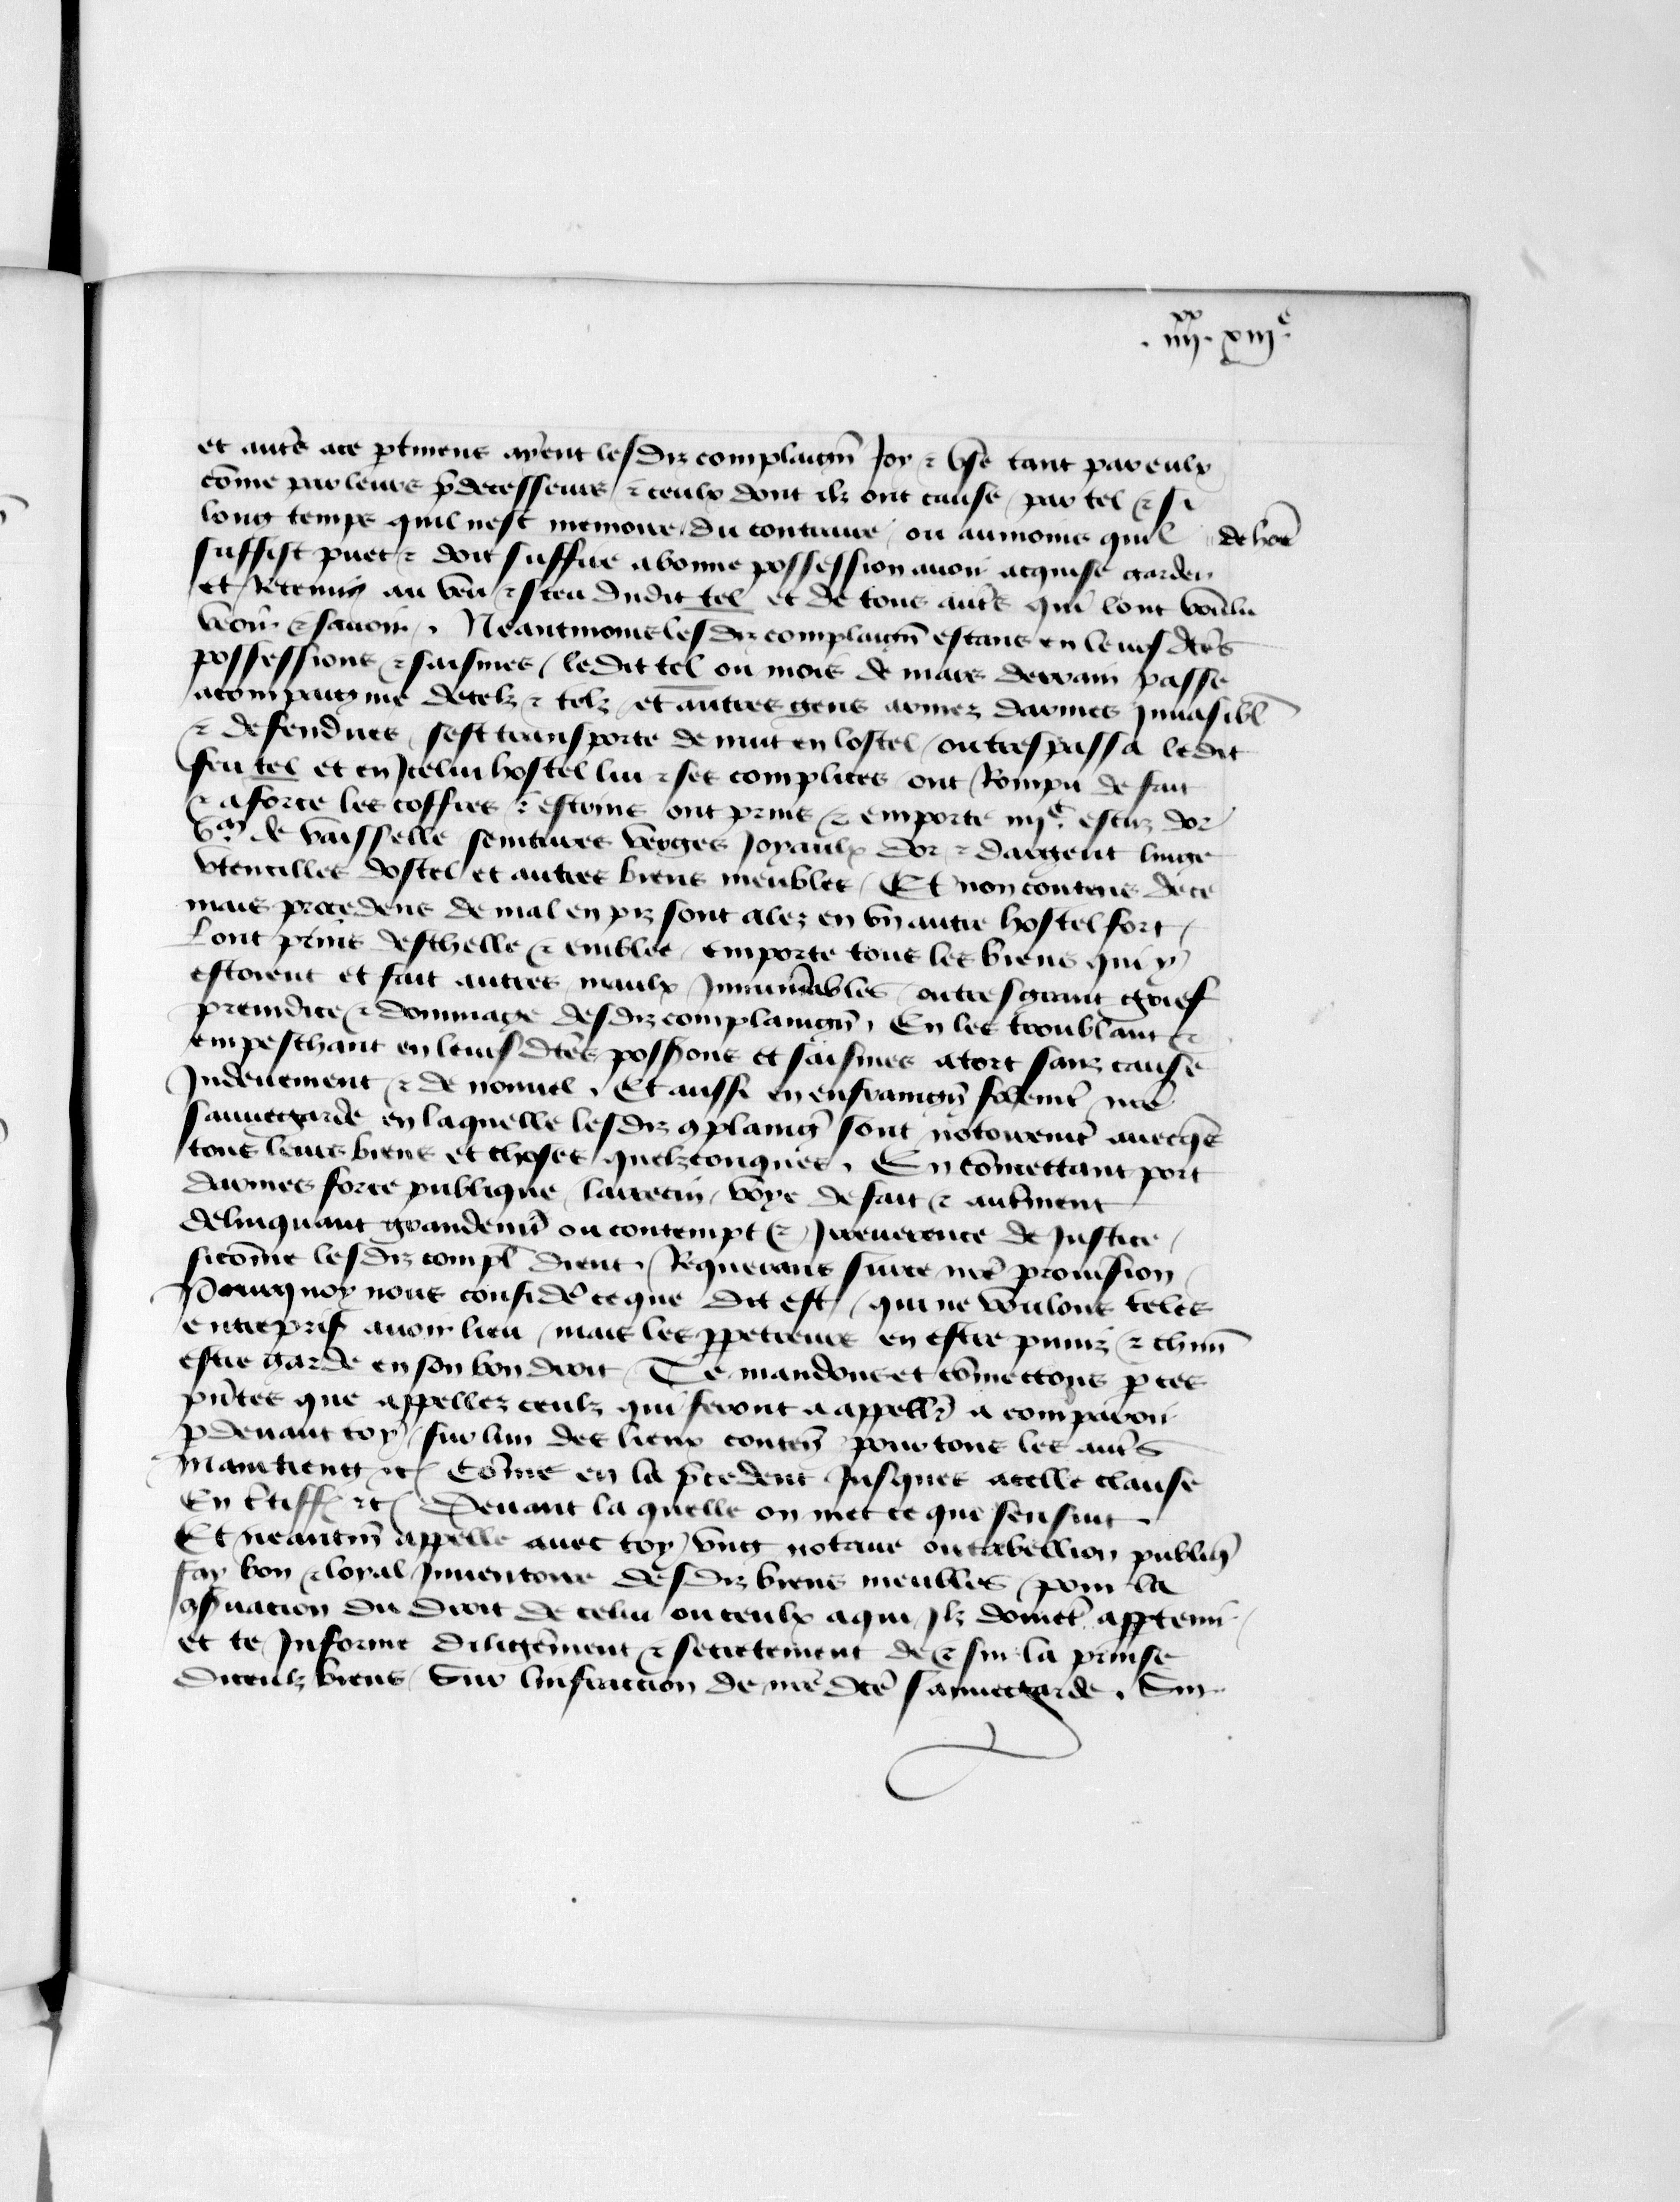 . iiii xx . xiii e .
et autrẽs ace ꝑtinens ayent lesdiz complaigñ Joy ⁊ vsẽ tant par eulx
cõme par leurs p̃decesseurs ⁊ ceulx dont ilz ont cause par tel ⁊ si
long temps quil nest memoire du contraire ou aumoins quil
suffist puet ⁊ doit suffire abonne possession auoir acquise garder
et Retenir au veu ⁊ sceu dudit tel et de tous autrẽs qui lont voulu
veoir ⁊ sauoir . Neantmoins lesdiz complaigñ estans en leurs dtẽs
possessions ⁊ saisines ledit tel ou mois de mars derrain passe
acompaignie de telz ⁊ telz et autres gens armez darmes Jnuasiblˉ
⁊ defendues sest transporte de nuit en lostel ou trespassa ledit
feu tel et en Jcelui hostel lui ⁊ ses complices ont Rompu de fait
⁊ aforce les coffres ⁊ escrins ont prins ⁊ emporte iiii c. escuz dor
de vaisselle seintures verges Joyaulx dor ⁊ dargent linge
vtencilles dostel et autres biens meubles Et non contens de ce
mais procedens de mal en piz sont alez en vñ autre hostel fort
Lont prins deschelle ⁊ emblee emporte tous les biens qui y
estoient et fait autres maulx Jnnumẽables ou tresgrant grief
preiudice ⁊ dommage desdiz complaingñ . En les troublant ⁊
empeschant en leurs dtẽs poss̃ons et saisines atort sanz cause
Jndeuement ⁊ de nouuel . Et aussi en enfraingñ folemt̃ nrẽ
sauuegarde en laquelle lesdiz ꝯplaing̃ sont notoiremt̃ auecq̃s
tous leurs biens et choses quelzconques . En cõmettant port
darmes force publique larrecin voye de fait ⁊ autrẽment
delinquant grandemt̃ ou contempt ⁊ Jrreuerence de Justice
sicõme lesdiz complˉ dient . Requerans surce nrẽ prouision
Pourquoy nous considẽ ce que dit est qui ne voulons teles
entrepris̃ auoir lieu mais les ꝑpetreurs en estre puniz ⁊ chũn
estre garde en son bon droit Te mandons et cõmectons ꝑ ces
pñtes que appellez ceulz qui seront a appellˉ a comparoir
ꝑdeuant toy sur lun des lieux conteñ pour tous les autrẽs
Maintieng ⁊c̃ Cõme en la p̃cedent Jusques acelle clause
En c̃tiffˉ ⁊c̃ Deuant la quelle on met ce que sensuit .
Et neantm̃ appelle auec toy vng notaire ou tabellion publiq̃
fay bon ⁊ loyal Jnuentoire desdiz biens meubles pour la
ꝯs̃uacion du droit de celui ou ceulx aqui Jlz doiuent apꝑtenir
et te Jnforme diligẽment ⁊ secretement de ⁊ sur la prinse
diceulz biens Sur linfraction de nrẽ dtẽ sauuegarde . Sur